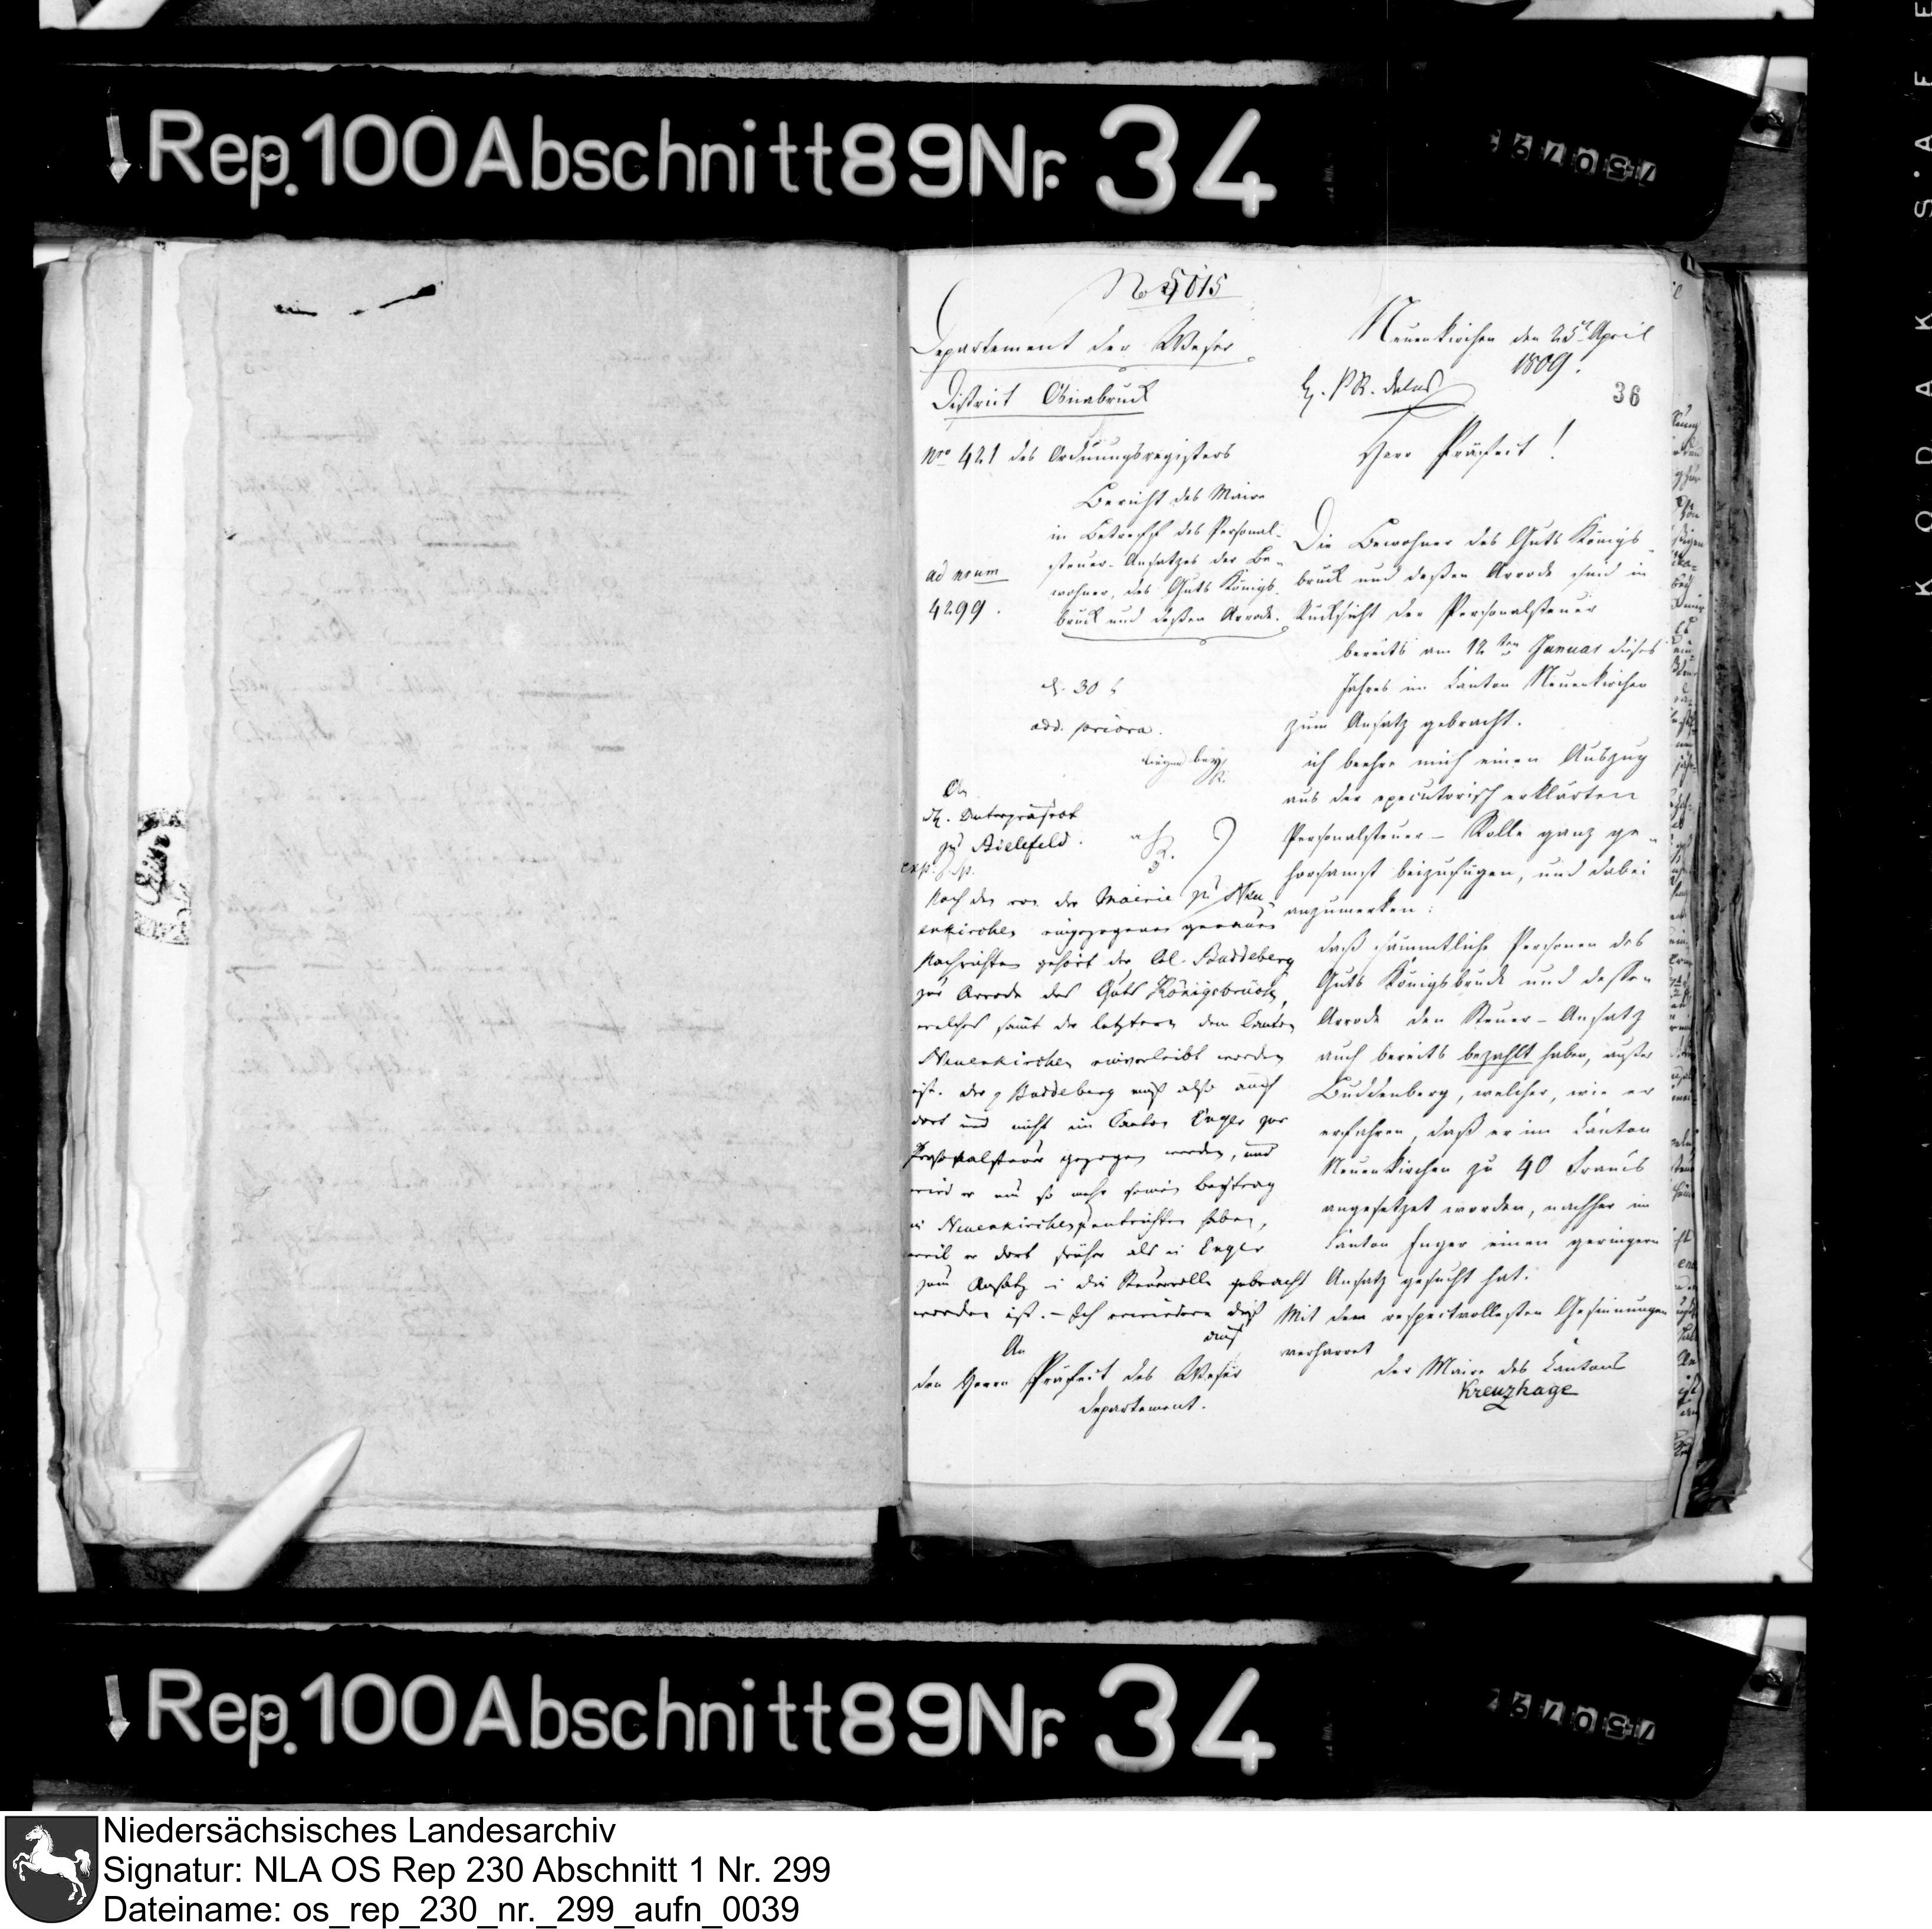 Rep. 100 Abschnitt 89 Nr. 34
No 5015
Departement der Weser
District Osnabruck
Neuenkirchen den 25t April
1809.
36
Nro 421 des Ordnungsregisters
Herr Präfect!
Bericht des Maire
in Betreff des Personal-
steuer-Ansatzes der Be-
wohner, des Guts Königs-
bruck und deßen Arrode.
ad num
4299.
add. priora.
liegen bey
Die Bewohner des Guts Königs-
bruck und deßen Arrode sind in
Rucksicht der Personalsteuer
bereits am 12ten Januar dieses
Jahres im Canton Neuenkirchen
zum Ansatz gebracht.
ich beehre mich einen Auszug
aus der executorisch erklärten
Personalsteuer-Rolle ganz ge-
horsamst beizufügen, und dabei
anzumerken:
daß sämmtliche Personen des
Guts Königsbruck und dessen
Arrode den Steuer-Ansatz
auch bereits bezahlt haben, außer
Buddenberg, welcher, wie er
erfahren, daß er im Canton
Neuenkirchen zu 40 Francs
angesetzet worden, nachher im
Canton Enger einen geringern
Ansatz gesucht hat.
Mit den respectvollesten Gesinnungen
verharret
der Maire des Cantons
Kreuzhage
An
H. Unterpräfect
zu Bielefeld.
Nach den von der Mairie zu Neu-
enkirchen eingezogenen genauen
Nachrichten gehört der Col. Buddeberg
zur Arrode des Guts Königsbrück,
welches samt der letztern dem Canton
Neuenkirchen einverleibt worden
ist. der p Buddeberg muß also auch
dort und nicht im Canton Enger zur
Personalsteuer gezogen werden, und
wird er um so mehr seinen Beytrag
in Neuenkirchen zu entrichten haben,
weil er dort früher als in Enger
zum Ansatz in die Steuerrolle gebracht
worden ist. - Ich erwiedere dieß
auf
An
den Herrn Präfect des Weser
Departement.
Rep. 100 Abschnitt 89 Nr. 34
KODAK SAFE
Niedersächsisches Landesarchiv
Signatur: NLA OS Rep 230 Abschnitt 1 Nr. 299
Dateiname: os_rep_230_nr._299_aufn_0039